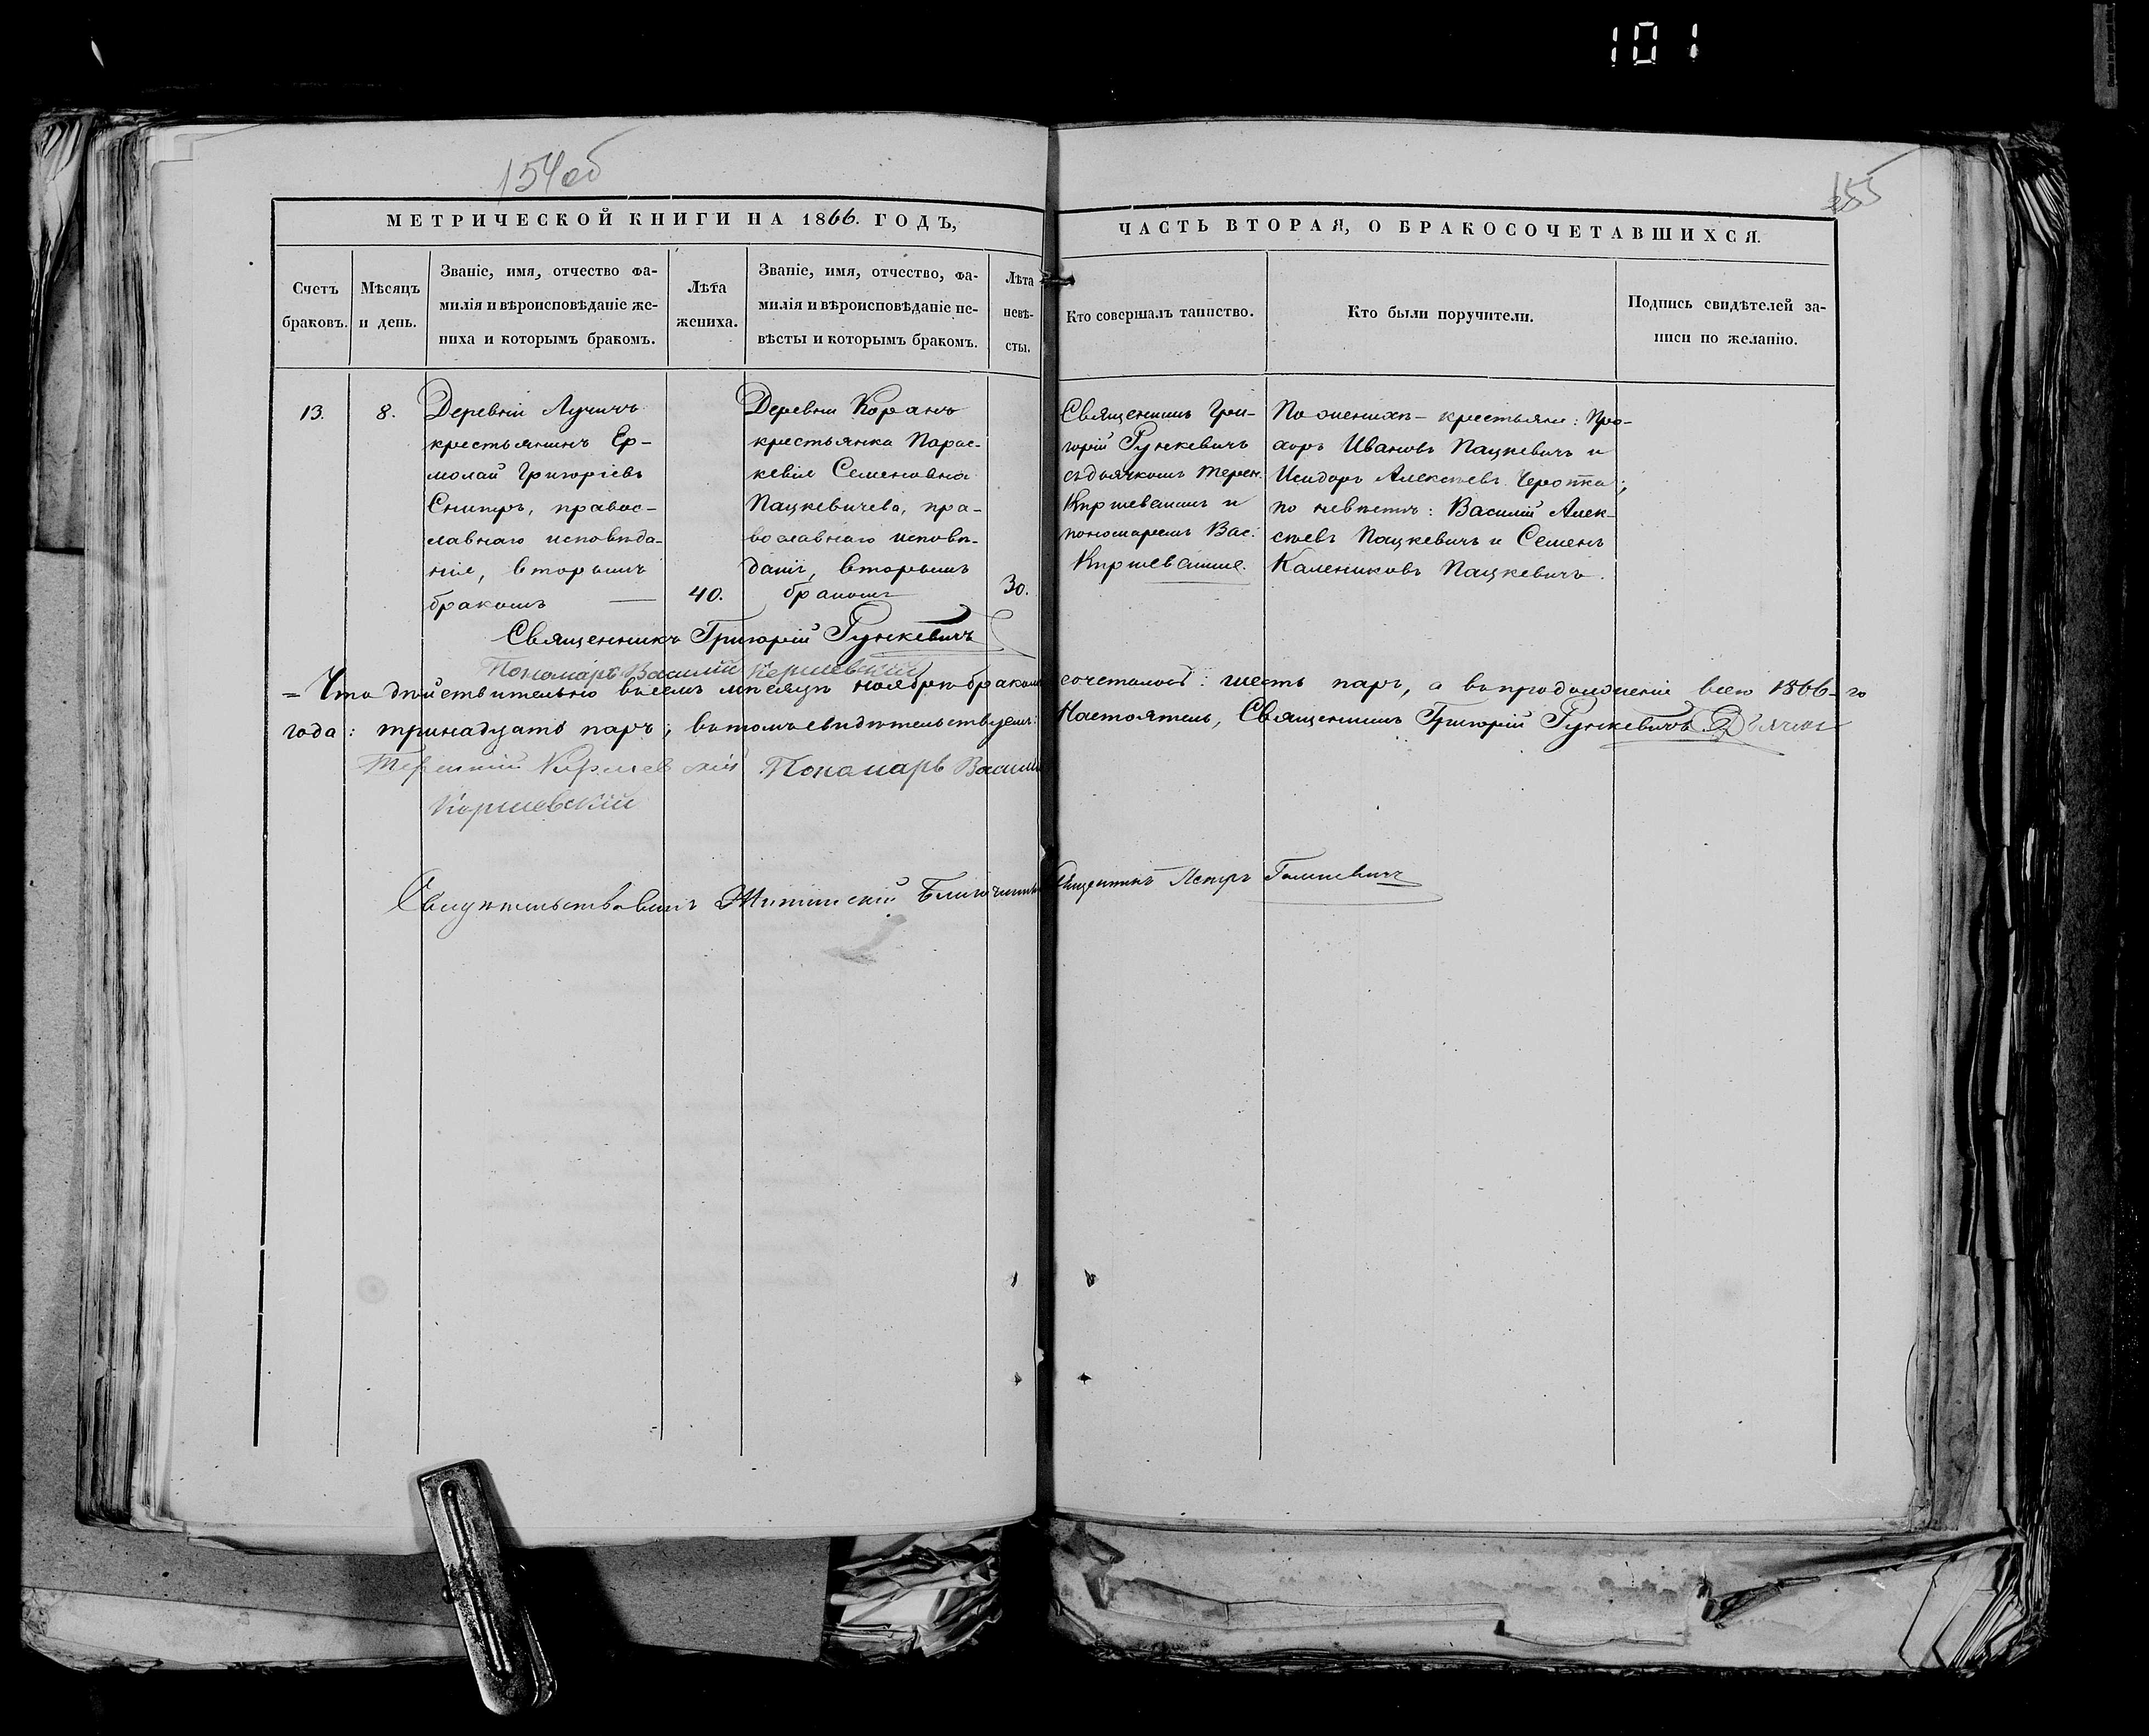 101
154об
155
МЕТРИЧЕСКОЙ КНИГИ НА 1866. ГОДЪ,
ЧАСТЬ ВТОРАЯ, О БРАКОСОЧЕТАВШИХСЯ.
Счетъ
браковъ.
Мѣсяцъ
и день.
Званіе, имя, отчество фа-
милія и вѣроисповѣданіе же-
ниха и которымъ бракомъ.
Лѣта
жениха.
Званіе, имя, отчество, фа-
милія и вѣроисповѣданіе не-
вѣсты и которымъ бракомъ.
Лѣта
невѣ-
сты.
Кто совершалъ таинство.
Кто были поручители.
Подпись свидѣтелей за-
писи по желанію.
13.
8.
Деревни Лучичъ
крестьянинъ Ер-
молай Григоріевъ
Снитръ, правос-
лавнаго исповѣда-
нія, вторымъ
бракомъ —
40.
Деревни Коранъ
крестьянка Парас-
кевія Семеновна
Пацкевичева, пра-
вославнаго исповѣ-
данія, вторымъ
бракомъ
30.
Священникъ Гри-
горій Рункевичъ
съ дьячкомъ Терен.
и
пономаремъ Вас.
По женихѣ – крестьяне: Про-
хоръ Ивановъ Пацкевичъ и
Исидоръ Алексѣевъ
по невѣстѣ: Василій Алек-
сѣевъ Пацкевичъ и Семенъ
Калениковъ Пацкевичъ.
Священникъ Григорій Рункевичъ
Пономарь Василій
= Что дѣйствительно въ семъ мѣсяцѣ ноябрѣ бракомъ сочеталось: шесть паръ, а въ продолженіе всего 1866-го
года: тринадцать паръ; въ томъ свидѣтельствуемъ: Настоятель, Священникъ Григорій Рункевичъ Дьячекъ
Терентій Пономарь Василій
Свидѣтельствовалъ Благочинный Священникъ Петръ